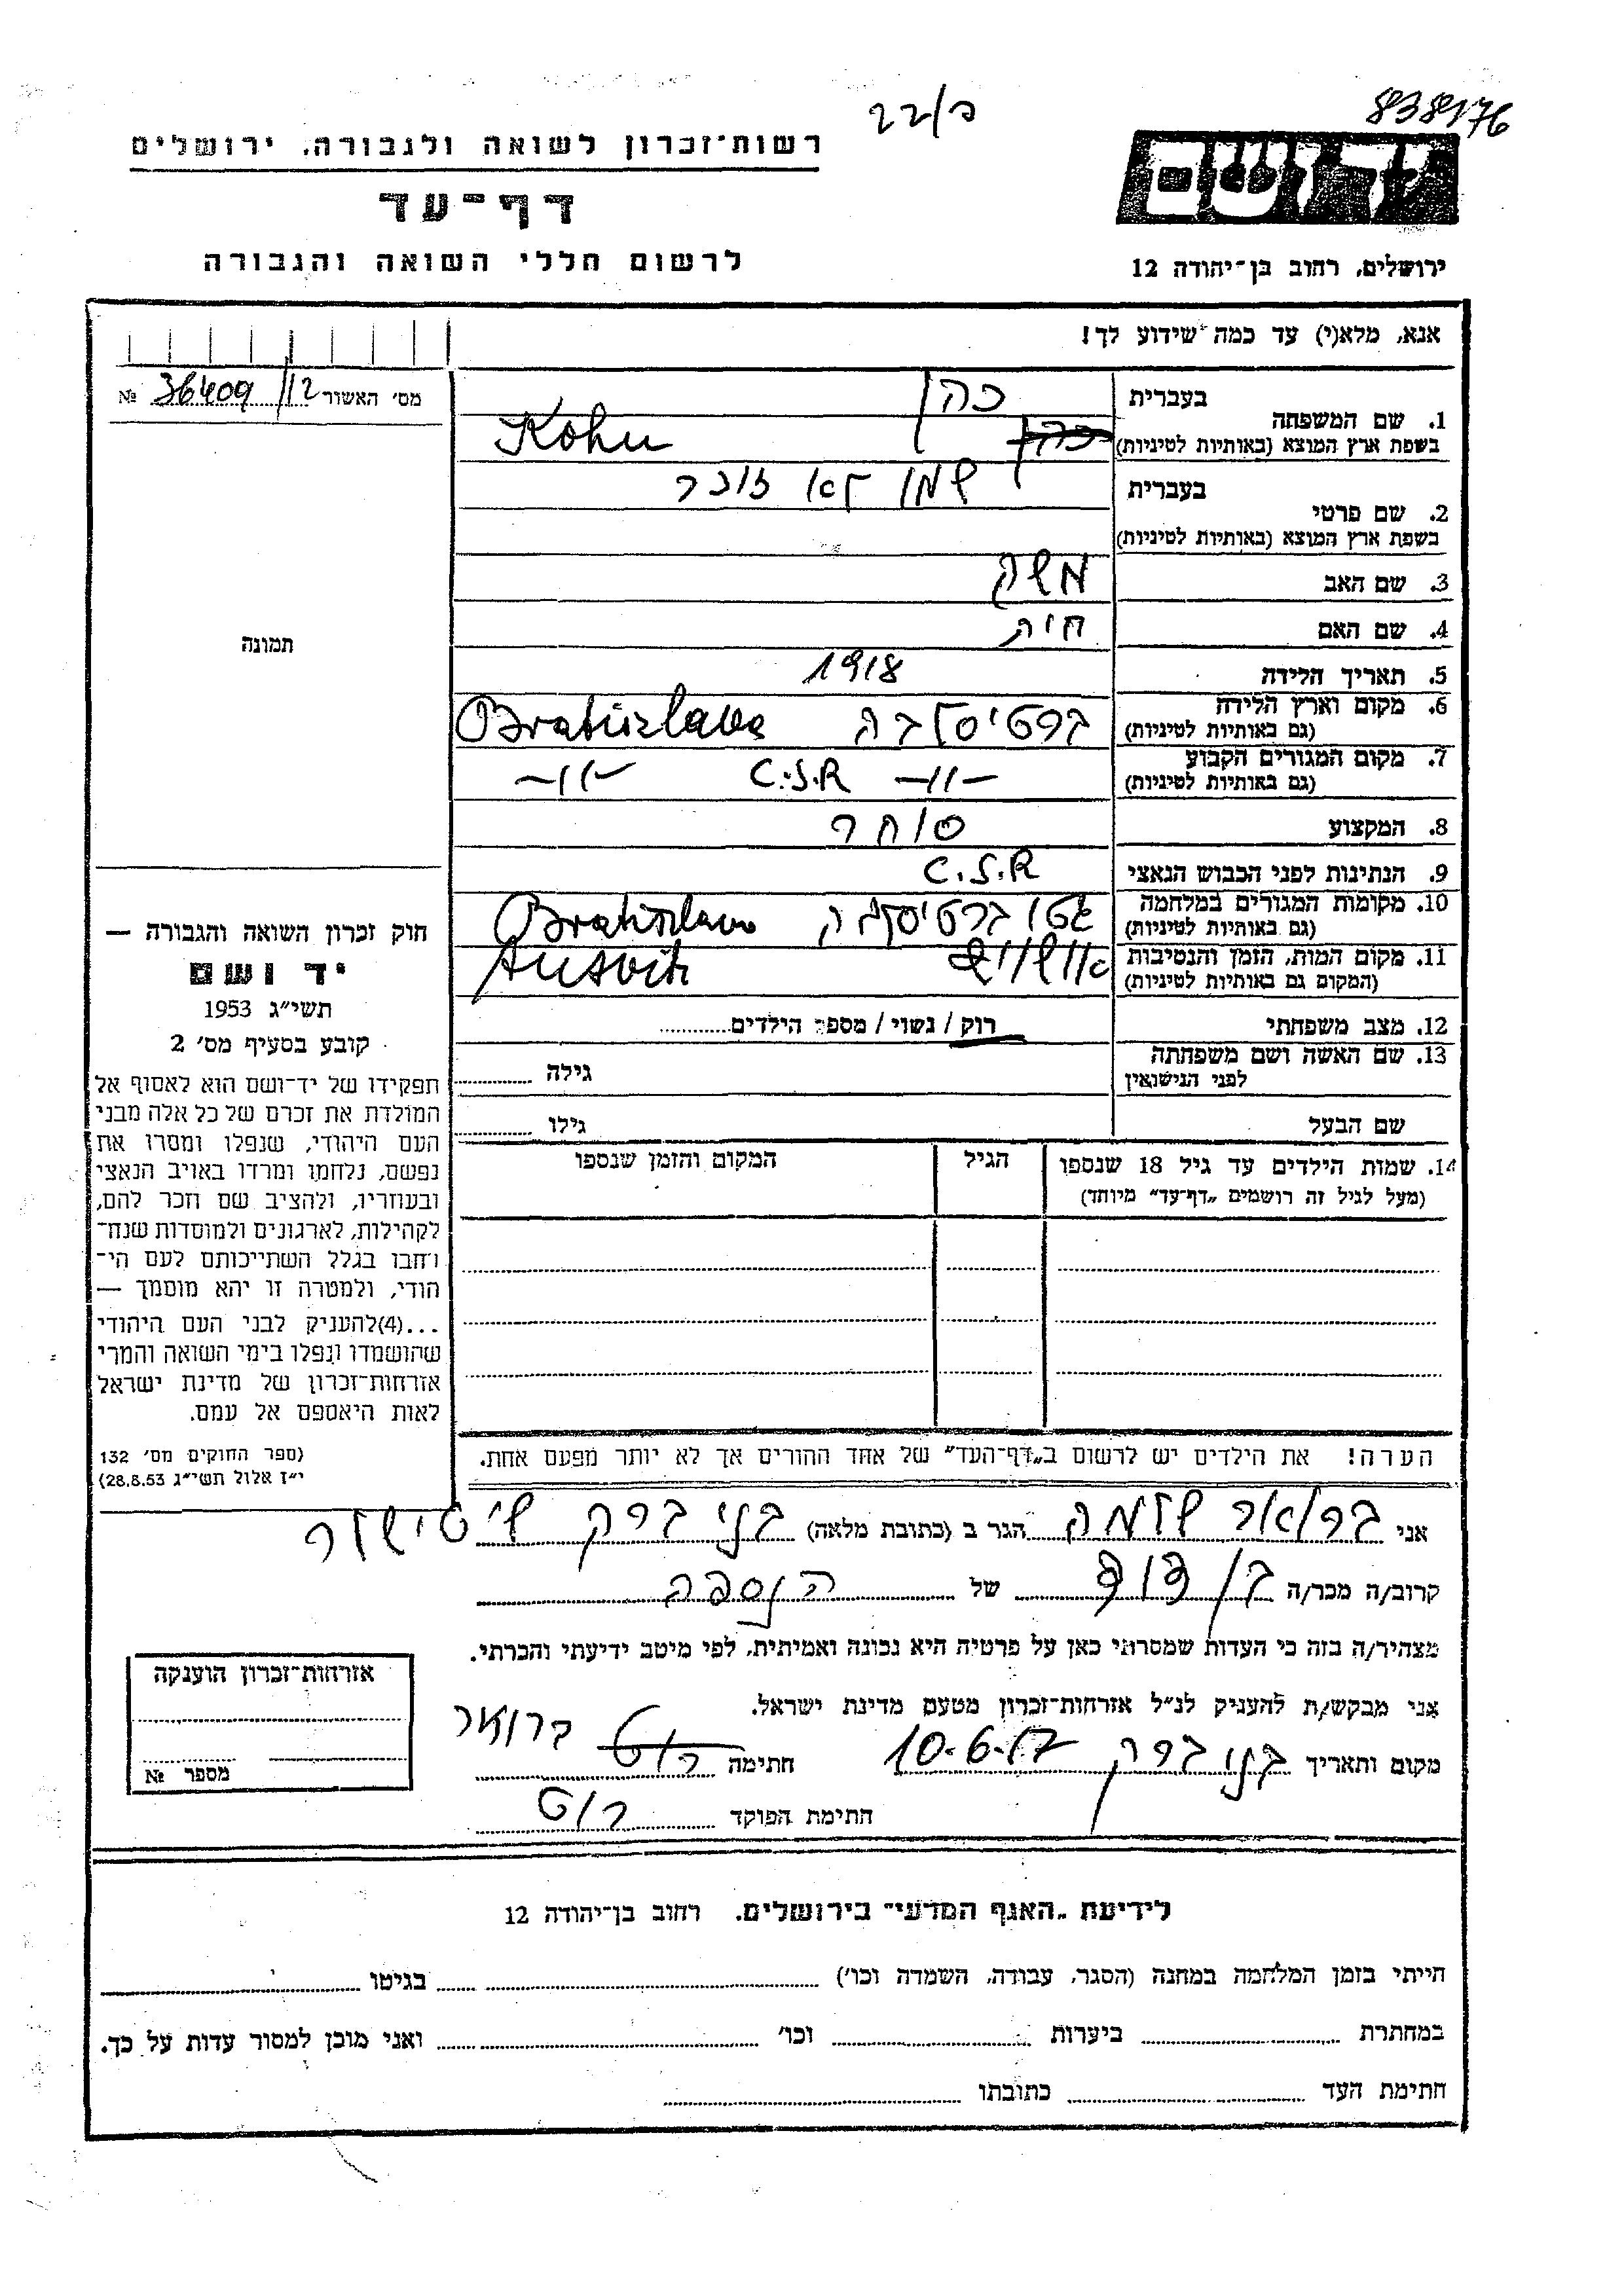 22/כ
838176
רשות־זכרון לשואה ולגבורה, ירושלים
דף־עד
לרשום חללי השואה והגבורה
יד ושם
ירושלים, רחוב בן־יהודה 12
אנא, מלא(י) עד כמה שידוע לך!
מס׳ האשור 36409/12 №
1. שם המשפחה
בעברית כהן
בשפת ארץ המוצא (באותיות לטיניות) Kohn
2. שם פרטי
בעברית
בשפת ארץ המוצא (באותיות לטיניות)
3. שם האב משה
4. שם האם חיה
5. תאריך הלידה 1918
6. מקום וארץ הלידה
(גם באותיות לטיניות) ברטיסלבה Bratislava
7. מקום המגורים הקבוע
(גם באותיות לטיניות) —״— C.S.R —״—
8. המקצוע סוחר
9. הנתינות לפני הכבוש הנאצי C.S.R
10. מקומות המגורים במלחמה
(גם באותיות לטיניות) גטו ברטיסלבה Bratislava
11. מקום המות, הזמן והנסיבות
(המקום גם באותיות לטיניות) Ausvitz
12. מצב משפחתי רוק / נשוי / מספר הילדים
13. שם האשה ושם משפחתה
לפני הנישואין
גילה
שם הבעל גילו
14. שמות הילדים עד גיל 18 שנספו
(מעל לגיל זה רושמים „דף־עד״ מיוחד)
הגיל
המקום והזמן שנספו
הערה! את הילדים יש לרשום ב„דף־העד״ של אחד ההורים אך לא יותר מפעם אחת.
תמונה
חוק זכרון השואה והגבורה —
יד ושם
תשי״ג 1953
קובע בסעיף מס׳ 2
תפקידו של יד־ושם הוא לאסוף אל
המולדת את זכרם של כל אלה מבני
העם היהודי, שנפלו ומסרו את
נפשם, נלחמו ומרדו באויב הנאצי
ובעוזריו, ולהציב שם וזכר להם,
לקהילות, לארגונים ולמוסדות שנח־
רחבו בגלל השתייכותם לעם הי־
הודי, ולמטרה זו יהא מוסמך —
...(4)להעניק לבני העם היהודי
שהושמדו ונפלו בימי השואה והמרי
אזרחות־זכרון של מדינת ישראל
לאות היאספם אל עמם.
(ספר החוקים מס׳ 132
י״ז אלול תשי״ג 28.8.53)
אני ברואר שלמה הגר ב (כתובת מלאה) בני ברק
קרוב/ה מכר/ה בן דוד של הנספה
מצהיר/ה בזה כי העדות שמסרתי כאן על פרטיה היא נכונה ואמיתית, לפי מיטב ידיעתי והכרתי.
אני מבקש/ת להעניק לנ״ל אזרחות־זכרון מטעם מדינת ישראל.
מקום ותאריך בני ברק 10.6.57 חתימה רוט ברואר
חתימת הפוקד רוט
אזרחות־זכרון הוענקה
מספר №
לידיעת „האגף המדעי״ בירושלים, רחוב בן־יהודה 12
חייתי בזמן המלחמה במחנה (הסגר, עבודה, השמדה וכו׳) בגיטו
במחתרת ביערות וכו׳ ואני מוכן למסור עדות על כך.
חתימת העד כתובתו